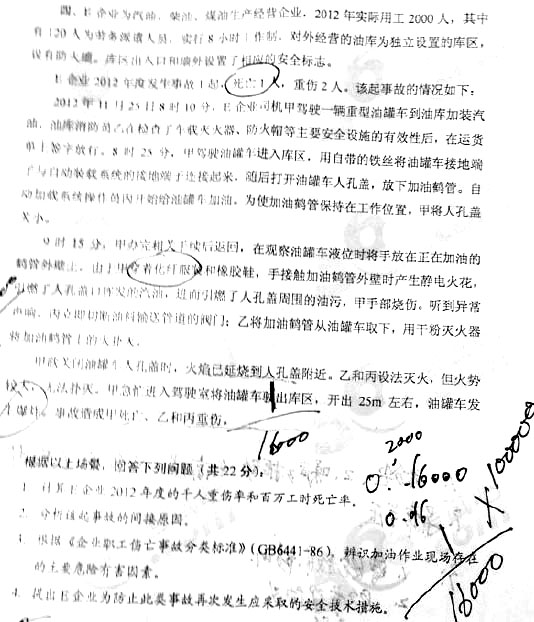 四、E 企业为汽油、柴油、煤油生产经营企业，2012 年实际用工 2000 人，其中
有 120 人为劳务派遣人员，实行 8 小时工作制，对外经营的油库为独立设置的库区，
设有防火墙。库区出入口和墙外设置了相应的安全标志。
E 企业 2012 年度发生事故 1 起，死亡 1 人，重伤 2 人。该起事故的情况如下：
2012 年 11 月 25 日 8 时 10 分，E 企业司机甲驾驶一辆重型油罐车到油库加装汽
油，油库消防员乙在检查了车载灭火器、防火帽等主要安全设施的有效性后，在运货
单上签字放行。8 时 25 分，甲驾驶油罐车进入库区，用自带的铁丝将油罐车接地端
子与自动装载系统的接地端子连接起来，随后打开油罐车人孔盖，放下加油鹤管。自
动加载系统操作员丙开始给油罐车加油。为使加油鹤管保持在工作位置，甲将人孔盖
关小。
9 时 15 分，甲办完相关手续后返回，在观察油罐车液位时将手放在正在加油的
鹤管外壁上，由于甲穿着化纤服装和橡胶鞋，手接触加油鹤管外壁时产生静电火花，
引燃了人孔盖口挥发的汽油，进而引燃了人孔盖周围的油污，甲手部烧伤。听到异常
声响，丙立即切断油料输送管道的阀门；乙将加油鹤管从油罐车取下，用干粉灭火器
将加油鹤管上的火扑灭。
甲欲关闭油罐车人孔盖时，火焰已延烧到人孔盖附近。乙和丙设法灭火，但火势
较大，无法扑灭。甲急忙进入驾驶室将油罐车驶出库区，开出 25m 左右，油罐车发
生爆炸，事故造成甲死亡、乙和丙重伤。
1
16000
2000
根据以上场景，回答下列问题（共 22 分）：
0.16000
1. 计算 E 企业 2012 年度的千人重伤率和百万工时死亡率。
0.16
2. 分析该起事故的间接原因。
3. 根据《企业职工伤亡事故分类标准》（GB6441-86），辨识加油作业现场存在
的主要危险有害因素。
4. 提出 E 企业为防止此类事故再次发生应采取的安全技术措施。
1
16000